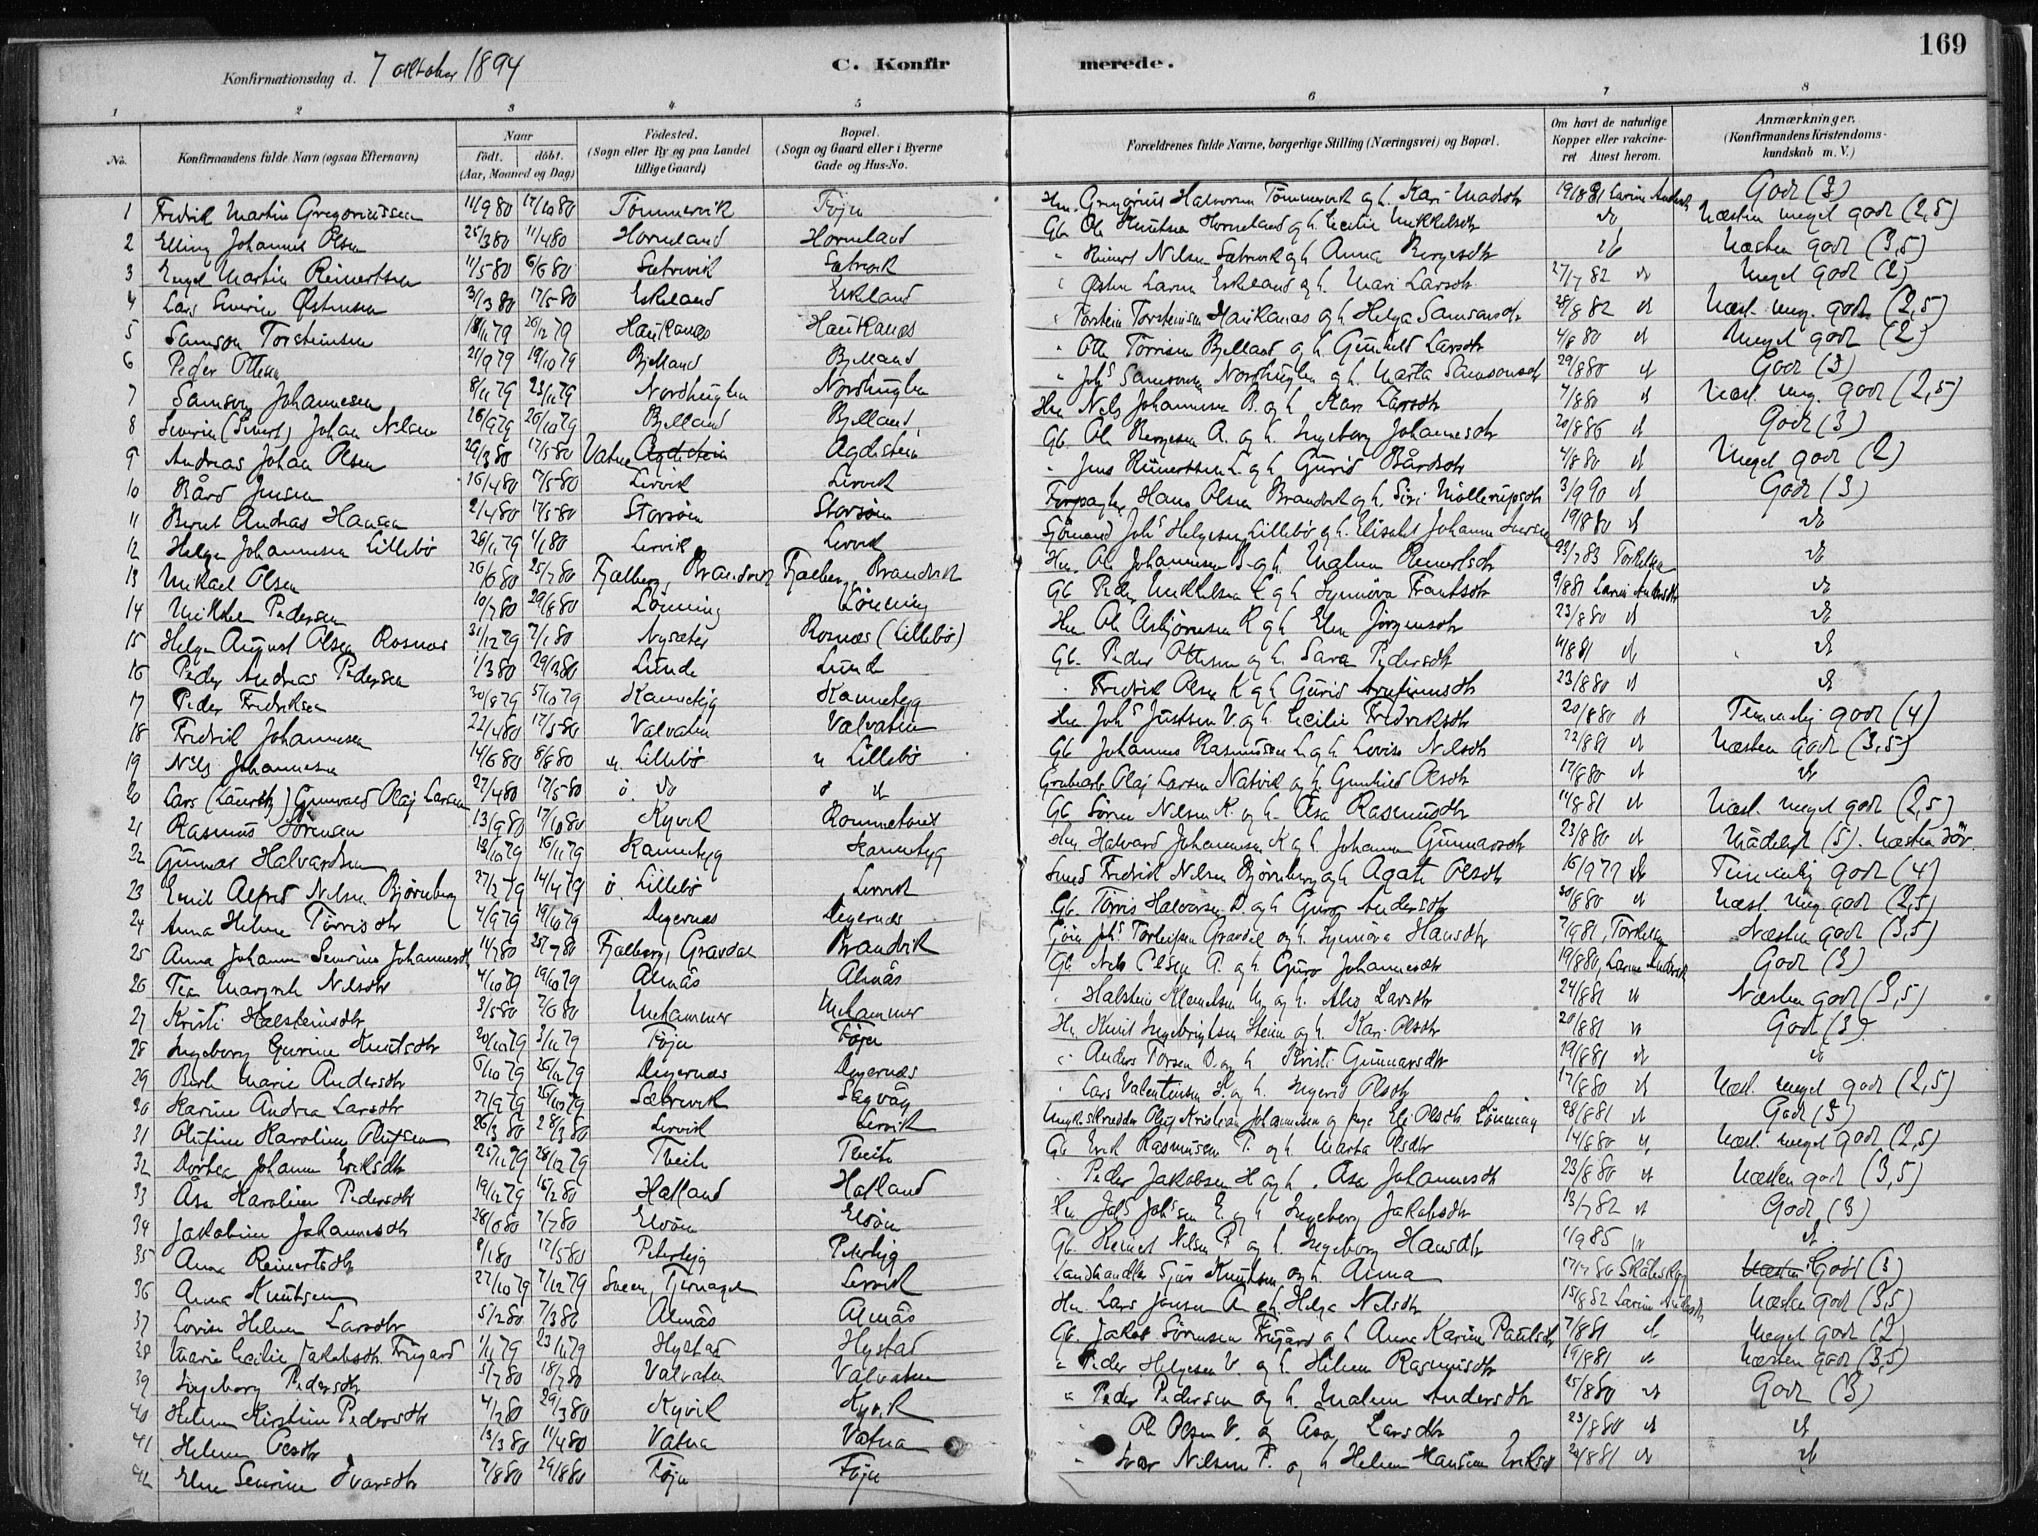 169
Konfirmationsdag d. 7 oktober 1894
C. Konfirmerede.
1 2 3 4 5 6 7 8
No.
Konfirmandens fulde Navn (ogsaa Efternavn)
Naar
födt. döbt.
(Aar, Maaned og Dag)
Födested.
(Sogn eller By og paa Landet tillige Gaard)
Bopæl.
(Sogn og Gaard eller i Byerne Gade og Hus-No.
Forældrenes fulde Navne, borgerlige Stilling (Næringsvei) og Bopæl.
Om havt de naturlige Kopper eller vakcineret Attest herom.
Anmærkninger.
(Konfirmandens Kristendomskundskab m. V.)
1 Fredrik Martin Gregoriussen 11/9 80 17/10 80 Tömmervik Föjn Hm. Gregorius Halvorsen Tömmervik og h. Kari Madsdtr 19/8 81 Larine Andersdtr Godt (3)
2 Elling Johannes Olsen 25/3 80 11/4 80 Horneland Horneland Gb. Ole Knutsen Horneland og h. Cecilie Mikkelsdtr do Næsten meget godt (2,5)
3 Engel Martin Reinertsen 11/5 80 6/6 80 Sætrevik Sætrevik " Reinert Nilsen Sætrevik og h. Anna Bergesdtr do Næsten godt (3,5)
4 Lars Severin Østensen 31/3 80 17/5 80 Eskeland Eskeland " Østen Larsen Eskeland og h. Mari Larsdtr 27/7 82 do Meget godt (2)
5 Samson Torsteinsen 18/11 79 26/12 79 Haukanæs Haukanæs " Torstein Torsteinsen Haukanæs og h. Helga Samsonsdtr 28/8 82 do Næst. meg. godt (2,5)
6 Peder Ottesen 21/9 79 19/10 79 Bjelland Bjelland " Otte Torrisen Bjelland og h. Gunhild Larsdtr 4/8 80 do Meget godt (2)
7 Samson Johannesen 8/11 79 23/11 79 Nordhuglen Nordhuglen " Johs Samsonsen Nordhuglen og h. Marta Samsonsdtr 29/8 80 do Godt (3)
8 Severin (Sivert) Johan Nilsen 26/9 79 26/10 79 Bjelland Bjelland Hm Nils Johannesen B. og h Kari Larsdtr 4/8 80 do Næst. meg. godt (2,5)
9 Andreas Johan Olsen 29/3 80 17/5 80 Vatne Agdestein Agdestein Gb. Ole Bergesen A. og h. Ingeborg Johannesdtr 20/8 86 do Godt (3)
10 Bård Jensen 16/4 80 17/5 80 Lervik Lervik " Jens Reinertsen L. og h Gurid Bårdsdtr 4/8 80 do Meget godt (2)
11 Bernt Andreas Hansen 2/4 80 17/5 80 Storsöen Storsöen Forpagter Hans Olsen Brandvik og h. Siri Möllerupsdtr 3/9 90 do Godt (3)
12 Helge Johannesen Lillebö 26/11 79 1/1 80 Lervik Lervik Sjömand Johs Helgesen Lillebö og h. Elisabet Johanne 19/8 80 do do
13 Mikael Olsen 26/6 80 25/7 80 Fjelberg, Brandvik Fjelberg, Brandvik Hm. Ole Johannesen B. og h Malene Reinertsdtr 23/7 83 Torkelsen do
14 Mikkel Pedersen 10/7 80 29/8 80 Lönning Lönning Gb Peder Mikkelsen L og h Synnöva Frantsdtr 9/8 81 Larine Andersdtr do
15 Helge August Olsen Rosnæs 31/12 79 7/1 80 Nysæter Rosnæs (Lillebö) Hm Ole Asbjörnsen R og h Elen Jörgensdtr 23/8 80 do do
16 Peder Andreas Pedersen 1/3 80 29/3 80 Lunde Lunde Gb. Peder Ottesen og h. Sara Pedersdtr 4/8 81 do do
17 Peder Fredriksen 30/8 79 5/10 79 Kannebyg Kannebyg " Fredrik Olsen K og h Gurid Arnfinnsdtr 23/8 80 do do
18 Fredrik Johannesen 22/4 80 17/5 80 Valvatn Valvatn Hm Johs Justsen V. og h. Cecilie Fredriksdtr 20/8 80 do Temmelig godt (4)
19 Nils Johannesen 14/6 80 8/8 80 n. Lillebö n Lillebö Gb Johannes Rasmussen L. og h Lovise Nilsdtr 22/8 81 do Næsten godt (3,5)
20 Lars (Lauritz) Gunvald Olaj Larsen 27/4 80 17/5 80 ö. do ö do Grubearb. Olaj Larsen Natvik og h. Gunhild Olsdtr 17/8 80 do do
21 Rasmus Sörensen 13/9 80 17/10 80 Kyvik Rommetveit Gb Sören Nilsen K. og h. Åsa Rasmusdtr 4/8 81 do Næst. meget godt (2,5)
22 Gunnar Halvardsen 13/10 79 16/11 79 Kannebyg Kannebyg Hm Halvard Johannesen K og h. Johanne Gunnarsdtr 23/8 80 do Mådeligt (5). Næsten
23 Emil Alfred Nilsen Bjørneberg 27/2 79 14/4 79 ö. Lillebö Lervik Smed Fredrik Nilsen Bjørneberg og h Agate Olsdtr 16/9 79 do Temmelig godt (4)
24 Anna Helene Törrisdtr 4/9 79 19/10 79 Digernæs Digernæs Gb. Törris Halvorsen D. og h Guro Andersdtr 20/8 80 do Næst. meg. godt (2,5)
25 Anna Johanne Severine Johannesdtr 14/7 80 25/7 80 Fjelberg, Gravdal Brandvik Johs Torleifsen Gravdal og h. Synnöva Hansdtr 7/9 81, Torkelsen Næsten godt (3,5)
26 Tea Margrete Nilsdtr 4/10 79 19/10 79 Almås Almås Gb. Nils Olsen A. og h Guro Johannesdtr 19/8 80, Larine Andersdtr Godt (3)
27 Kristi Halsteinsdtr 3/5 80 7/6 80 Mehammer Mehammer " Halstein Klemetsen M. og h. Larsdtr 24/8 81 do Næsten godt (3,5)
28 Ingeborg Gurine Knutsdtr 20/10 79 3/11 79 Föjn Föjn Hm Knut Ingebrigtsen og h. Kari Olsdtr 20/8 81 do Godt (3)
29 Berte Marie Andersdtr 6/10 79 26/12 79 Digernæs Digernæs " Anders Torsen D. og h Kristi Gunnarsdtr 19/8 81 do do
30 Karine Andrea Larsdtr 27/9 79 26/10 79 Sætrevik Sagvåg " Lars Valentinsen S. og h. Ingerid Olsdtr 17/8 80 do Næst. meget godt (2,5)
31 Olufine Karoline Olufsen 26/3 80 28/3 80 Lervik Lervik Ungk. skredder Oluf Kristian Johannesen og pige Eli Olsdtr Lönning 28/8 81 do Godt (3)
32 Dortea Johanne Eriksdtr 25/11 79 28/12 79 Tveite Tveite Gb Erik Rasmussen T. og h Marta Olsdtr 14/8 80 do Næst. meget godt (2,5)
33 Åsa Karoline Pedersdtr 19/12 79 15/2 80 Hafland Hafland " Peder Jakobsen H og h. Asa Johannesdtr 23/8 80 do Næsten godt (3,5)
34 Jakobine Johannesdtr 28/6 80 7/7 80 Elvöen Elvöen Hm Johs Johssen E. og h Ingeborg Jakobsdtr 13/7 82 do Godt (3)
35 Anna Reinertsdtr 8/1 80 17/5 80 Petersbyg Petersbyg Gb. Reinert Nilsen P. og h. Ingeborg Hansdtr 1/9 85 do do
36 Anna Knutsen 27/10 79 7/12 79 Sveen, Tjernagel Lervik Landhandler Sjur Knutsen og h Anna 17/7 86 Næsten Godt (3)
37 Lovise Helene Larsdtr 5/2 80 7/3 80 Almås Almås Hm Lars Jensen A og h. Helga Nilsdtr 15/8 82 Larine Andersdtr Næsten godt (3,5)
38 Marie Cecilie Jakobsdtr Frugård 1/11 79 23/11 79 Hystad Hystad Gb. Jakob Sörensen Frugård og h Anna Karine Paulsdtr 7/8 81 do Meget godt (2)
39 Ingeborg Pedersdtr 5/7 80 18/7 80 Valvatn Valvatn " Peder Helgesen V. og h. Helene Rasmusdtr 19/8 81 do Næsten godt (3,5)
40 Helene Kirstine Pedersdtr 4/2 80 29/3 80 Kyvik Kyvik " Peder Pedersen og h. Malene Andersdtr 25/8 80 do Godt (3)
41 Helene Olsdtr 13/3 80 11/4 80 Vatna Vatna " Ole Olsen V. og Asa Larsdtr 23/8 80 do do
42 Elen Severine Ivarsdtr 7/8 80 29/8 80 Föjn Föjn " Ivar Nilsen F. og h Helene Hansine Eriksd 20/8 81 do do